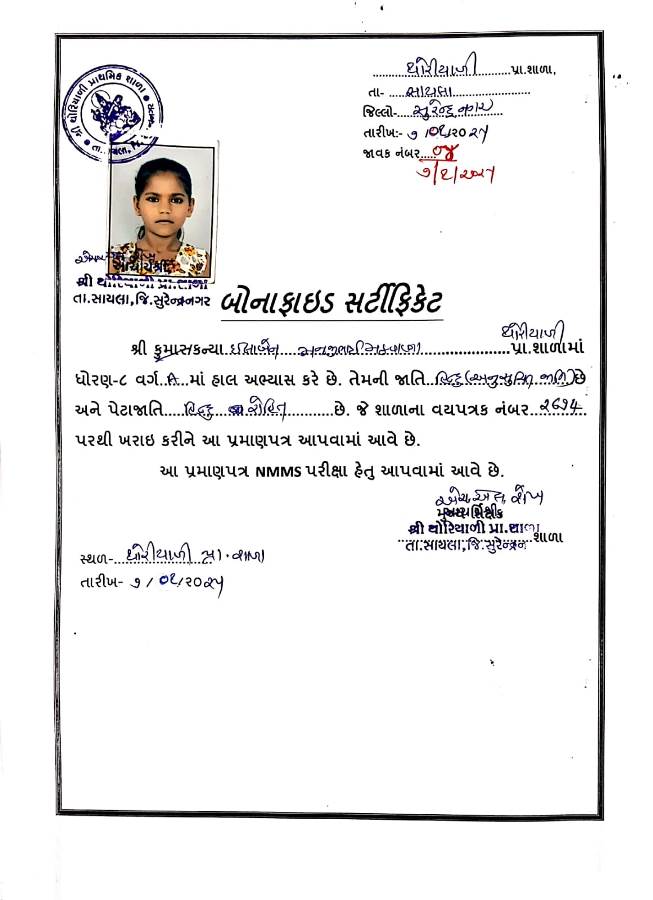 થોરીયાળી પ્રા.શાળા,
તા- સાયલા
જિલ્લો- સુરેન્દ્રનગર
તારીખ:- ૭/૦૧/૨૦૨૫
જાવક નંબર
શ્રી થોરિયાળી પ્રાથમિક શાળા
આચાર્યશ્રી
શ્રી થોરિયાળી પ્રા.શાળા
તા.સાયલા,જિ.સુરેન્દ્રનગર
બોનાફાઇડ સર્ટીફિકેટ
થોરીયાળી
શ્રી કુમાર/કન્યા ઈલાબેન પ્રા.શાળામાં
ધોરણ-૮ વર્ગ A માં હાલ અભ્યાસ કરે છે. તેમની જાતિ હિન્દુ (અનુસુચિત જાતિ) છે
અને પેટાજાતિ હિન્દુ રોહિત છે. જે શાળાના વયપત્રક નંબર ૨૬૧૪
પરથી ખરાઇ કરીને આ પ્રમાણપત્ર આપવામાં આવે છે.
આ પ્રમાણપત્ર NMMS પરીક્ષા હેતુ આપવામાં આવે છે.
શ્રી થોરિયાળી પ્રા.શાળા
શાળા
તા.સાયલા,જિ.સુરેન્દ્રન
સ્થળ- થોરીયાળી પ્રા. શાળા
તારીખ- ૭/૦૧/૨૦૨૫